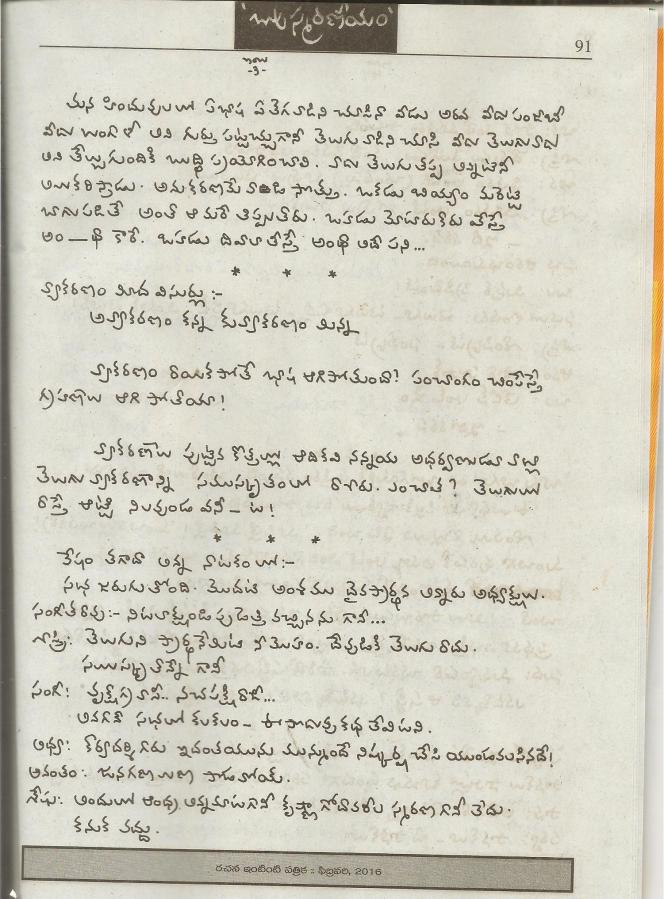 బాపు స్మరణీయం
91
-3-
మన హిందువులలో ఏభాష ఏ తెగవాడిని చూసినా వీడు అరవ వీడు పంజాబీ
వీడు బంగాళీ అని గుర్తు పట్టచ్చుగానీ తెలుగు వాడిని చూసి వీడు తెలుగువాడు
అని తేల్చుకుందికి బుద్ధి ప్రయోగించాలి. వాడు తెలుగు తప్ప అన్నిటినీ
అనుకరిస్తాడు. అనుకరణమే వాడి సొత్తు. ఒకడు బియ్యం మరపట్టి
బాగుపడితే అంతా ఆ మరే తిప్పుతారు. ఒకడు మోటారుకారు వేస్తే
అం—తా కారే. ఒకడు దివాలా తీస్తే అంతా అదే పని...
* * *
వ్యాకరణం మీద విసుర్లు :-
అవ్యాకరణం కన్న కువ్యాకరణం మిన్న
వ్యాకరణం రాయకపోతే భాష ఆగిపోతుందా? పంచాంగం చింపేస్తే
గ్రహణాలు ఆగి పోతాయా!
వ్యాకరణాలు పుట్టిన కొత్తల్లో ఆదికవి నన్నయ అధర్వణుడూ వాళ్లు
తెలుగు వ్యాకరణాన్ని సమస్కృతంలో రాశారు. ఎంచాత? తెలుగులో
రాస్తే అట్టే నిలవుండదనీ – ట!
* * *
వేషం తగాదా అన్న నాటకంలో:-
సభ జరుగుతోంది. మొదటి అంశము దైవప్రార్థన అన్నారు అధ్యక్షులు.
సంగీతరావు:- నిటలాక్షుండిపుడెత్తి వచ్చినను గానీ...
శాస్త్రి: తెలుగుని ప్రార్థనేమిటి నీ మొహం. దేవుడికి తెలుగు రాదు.
సమస్కృతమేన్నే గానీ
సంగీ: వృక్షగ్రవాసీ.. నచపక్షిరాజో...
అనగానే సభలో కలకలం – ఈ పొడుపుకథ తేలిపని.
అధ్య: కార్యదర్శిగారు ఇదంతయును మున్ముందే నిష్కర్ష చేసి యుండవలసినదే!
అనంతం: జనగణమణ పాడవోయ్.
శేషు: అందులో ఆంధ్ర అన్నమాటగానీ కృష్ణా గోదావరుల స్మరణగానీ లేదు.
కనుక వద్దు.
రచన ఇంటింటి పత్రిక :: ఫిబ్రవరి, 2016